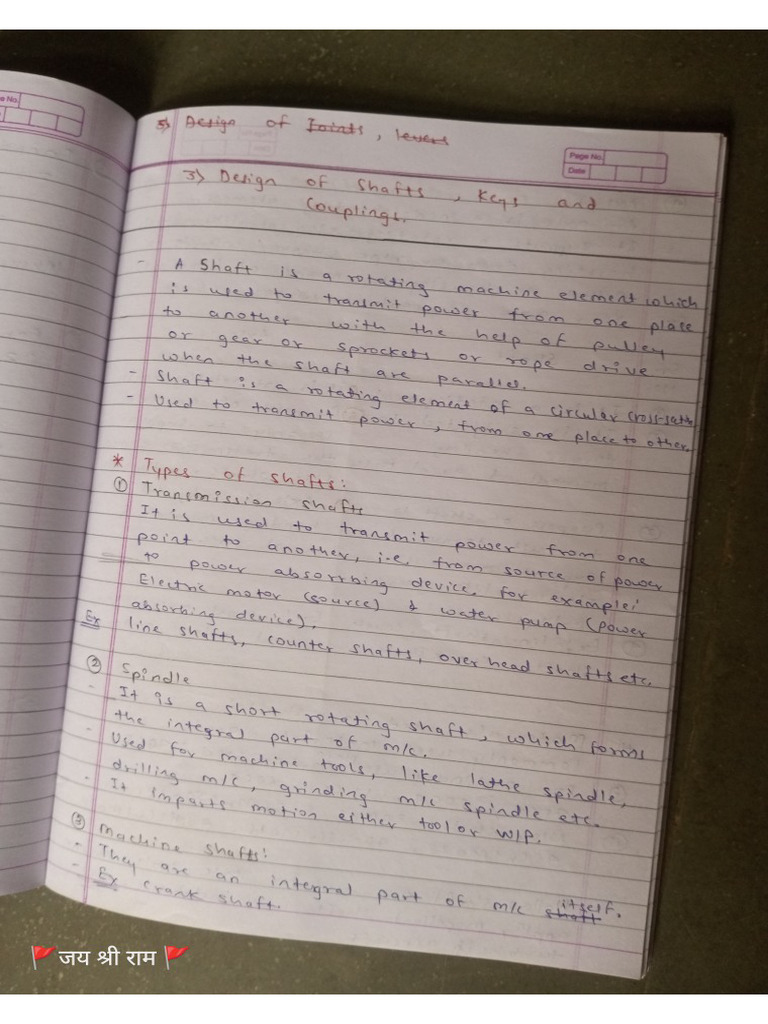 Page No.
Date
5) Design of Joints, levers
3) Design of Shafts, Keys and
Couplings.
- A Shaft is a rotating machine element which
is used to transmit power from one place
to another with the help of pulley
or gear or sprockets or rope drive
when the shaft are parallel.
- Shaft is a rotating element of a circular cross-sectn
- Used to transmit power, from one place to other.
* Types of shafts:
① Transmission shafts
It is used to transmit power from one
point to another, i.e. from source of power
to power absorrbing device. for example:
Electric motor (source) & water pump (power
absorbing device).
Ex line shafts, counter shafts, over head shafts etc.
② Spindle
- It is a short rotating shaft, which forms
the integral part of m/c.
- Used for machine tools, like lathe spindle,
drilling m/c, grinding m/c spindle etc.
- It imparts motion either tool or W/P.
③ Machine shafts:
- They are an integral part of m/c shaft itself.
- Ex crank shaft.
🚩जय श्री राम 🚩